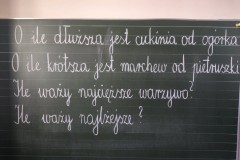 O ile dłuższa jest cukinia od ogórka
O ile krótsza jest marchew od pietruszki
Ile waży najcięższe warzywo?
Ile waży najlżejsze?